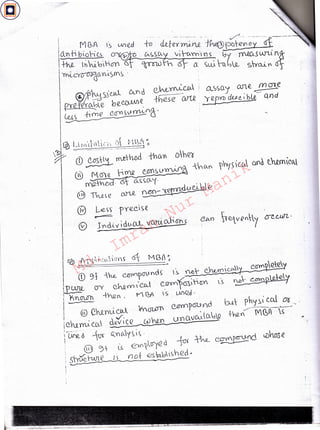 MBA is used to determine the potency of
antibiotics or to assay vitamins by measuring
the inhibition of growth of a suitable strain of
microorganisms.
Physical and chemical assay are more
preferable because these are reproducible and
less time consuming.
Limitation of MBA:
(i) Costly method than other
(ii) More time consuming than physical and chemical
method of assay
(iii) These are non-reproducible
(iv) Less precise
(v) Individual variations can frequently occur.
Imran Nur Manik
Applications of MBA:
(i) If the compounds is not chemically completely
pure or chemical composition is not completely
known then MBA is used.
(ii) Chemical known compound but physical or
chemical device when unavailable then MBA is
used for analysis.
(iii) It is employed for the compound whose
structure is not established.